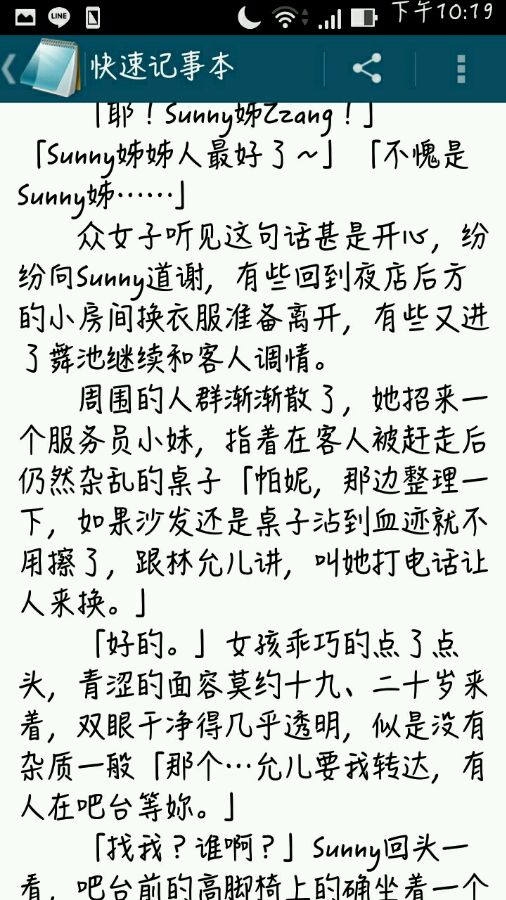 下午10:19
快速记事本
「耶！Sunny姊Zzang！」
「Sunny姊姊人最好了～」「不愧是
Sunny姊……」
众女子听见这句话甚是开心，纷
纷向Sunny道谢，有些回到夜店后方
的小房间换衣服准备离开，有些又进
了舞池继续和客人调情。
周围的人群渐渐散了，她招来一
个服务员小妹，指着在客人被赶走后
仍然杂乱的桌子「帕妮，那边整理一
下，如果沙发还是桌子沾到血迹就不
用擦了，跟林允儿讲，叫她打电话让
人来换。」
「好的。」女孩乖巧的点了点
头，青涩的面容莫约十九、二十岁来
着，双眼干净得几乎透明，似是没有
杂质一般「那个…允儿要我转达，有
人在吧台等妳。」
「找我？谁啊？」Sunny回头一
看，吧台前的高脚椅上的确坐着一个